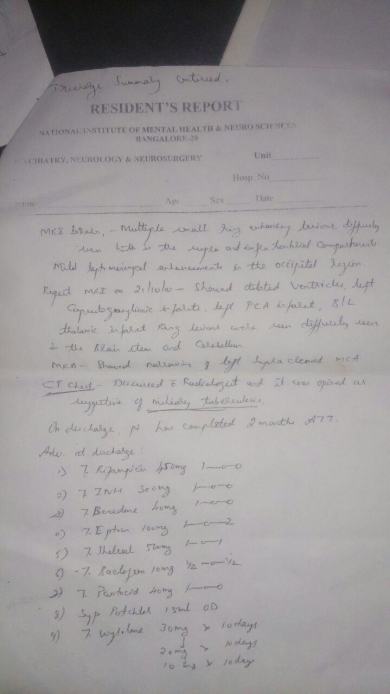 Discharge Summary Continued.
RESIDENT'S REPORT
NATIONAL INSTITUTE OF MENTAL HEALTH & NEURO SCIENCES
BANGALORE-29
CHIATRY, NEUROLOGY & NEUROSURGERY Unit
Hosp. No
Age Sex Date
MRI Brain, - Multiple small ring enhancing lesions diffusely
seen both in the supra and infra tentorial compartments
Mild leptomeningeal enhancements in the occipital region.
Repeat MRI on - Showed dilated Ventricles, left
Capsuloganglionic infarcts, left PCA infarct, B/L
thalamic infarct Ring lesions were seen diffusely seen
in the Brain stem and Cerebellum
MRA - Showed narrowing of left supraclinoid
CT Chest - Discussed Radiologist and it was opined as
suggestive of miliary tuberculosis.
On discharge, pt has completed 2 months ATT.
Adv. at discharge:
1) T. Rifampicin 450mg 1-0-0
2) T. INH 300mg 1-0-0
3) T. Benadone 40mg 1-0-0
4) T. Eptoin 100mg 1-0-2
5) T. 1-0-1
6) T. Baclofen 10mg ½-0-½
7) T. Pantocid 40mg 1-0-0
8) Syp Potchlor 15ml OD
9) T. Wysolone 30mg x 10 days
20mg x 10 days
10mg x 10 days